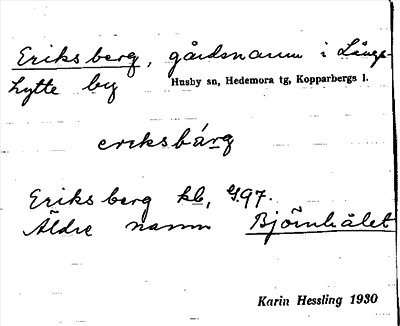 Eriksberg, gårdsnamn i Lång-
hytte by Husby sn, Hedemora tg, Kopparbergs l.
eriksbárg
Eriksberg kb, G97.
Äldre namn Björnhålet
Karin Hessling 1930